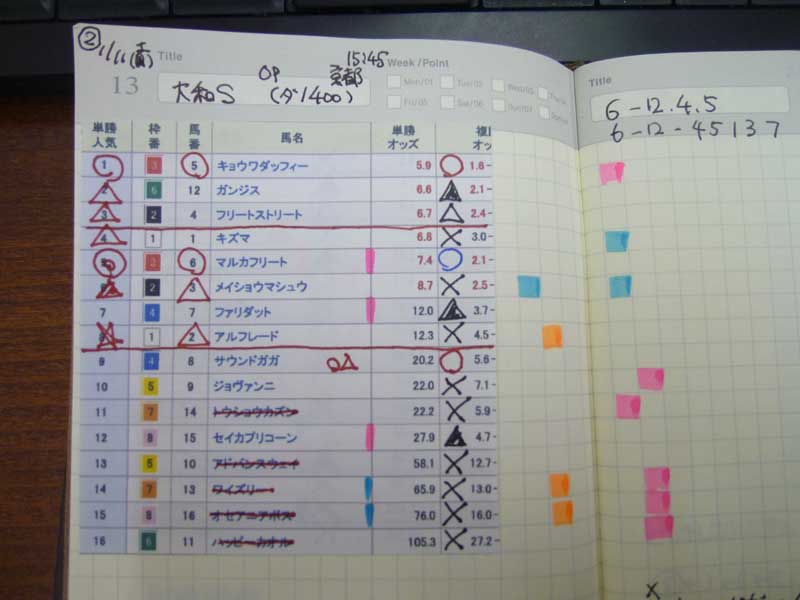 ② 1/11(斎) Title
13 大和S OP (ダ1400) 15:45 京都
Week/Point
Mon/01 Tue/02 Wed/03
Fri/05 Sat/06 Sun/07
Title
6-12.4.5
6-12-45137
単勝人気 枠番 馬番 馬名 単勝オッズ 複
オッ
1 3 5 キョウワダッフィー 5.9 1.6-
2 6 12 ガンジス 6.6 2.1-
3 2 4 フリートストリート 6.7 2.4-
4 1 1 キズマ 6.8 3.0-
5 3 6 マルカフリート 7.4 2.1-
6 2 3 メイショウマシュウ 8.7 2.5-
7 4 7 ファリダット 12.0 3.7-
8 1 2 アルフレード 12.3 4.5-
9 4 8 サウンドガガ 20.2 5.6-
10 5 9 ジョヴァンニ 22.0 7.1-
11 7 14 トウショウカズン 22.2 5.9-
12 8 15 セイカプリコーン 27.9 4.7-
13 5 10 アドバンスウェイ 58.1 12.7-
14 7 13 ワイズリー 65.9 13.0-
15 8 16 オセアニアボス 76.0 16.0-
16 6 11 ハッピーカオル 105.3 27.2-